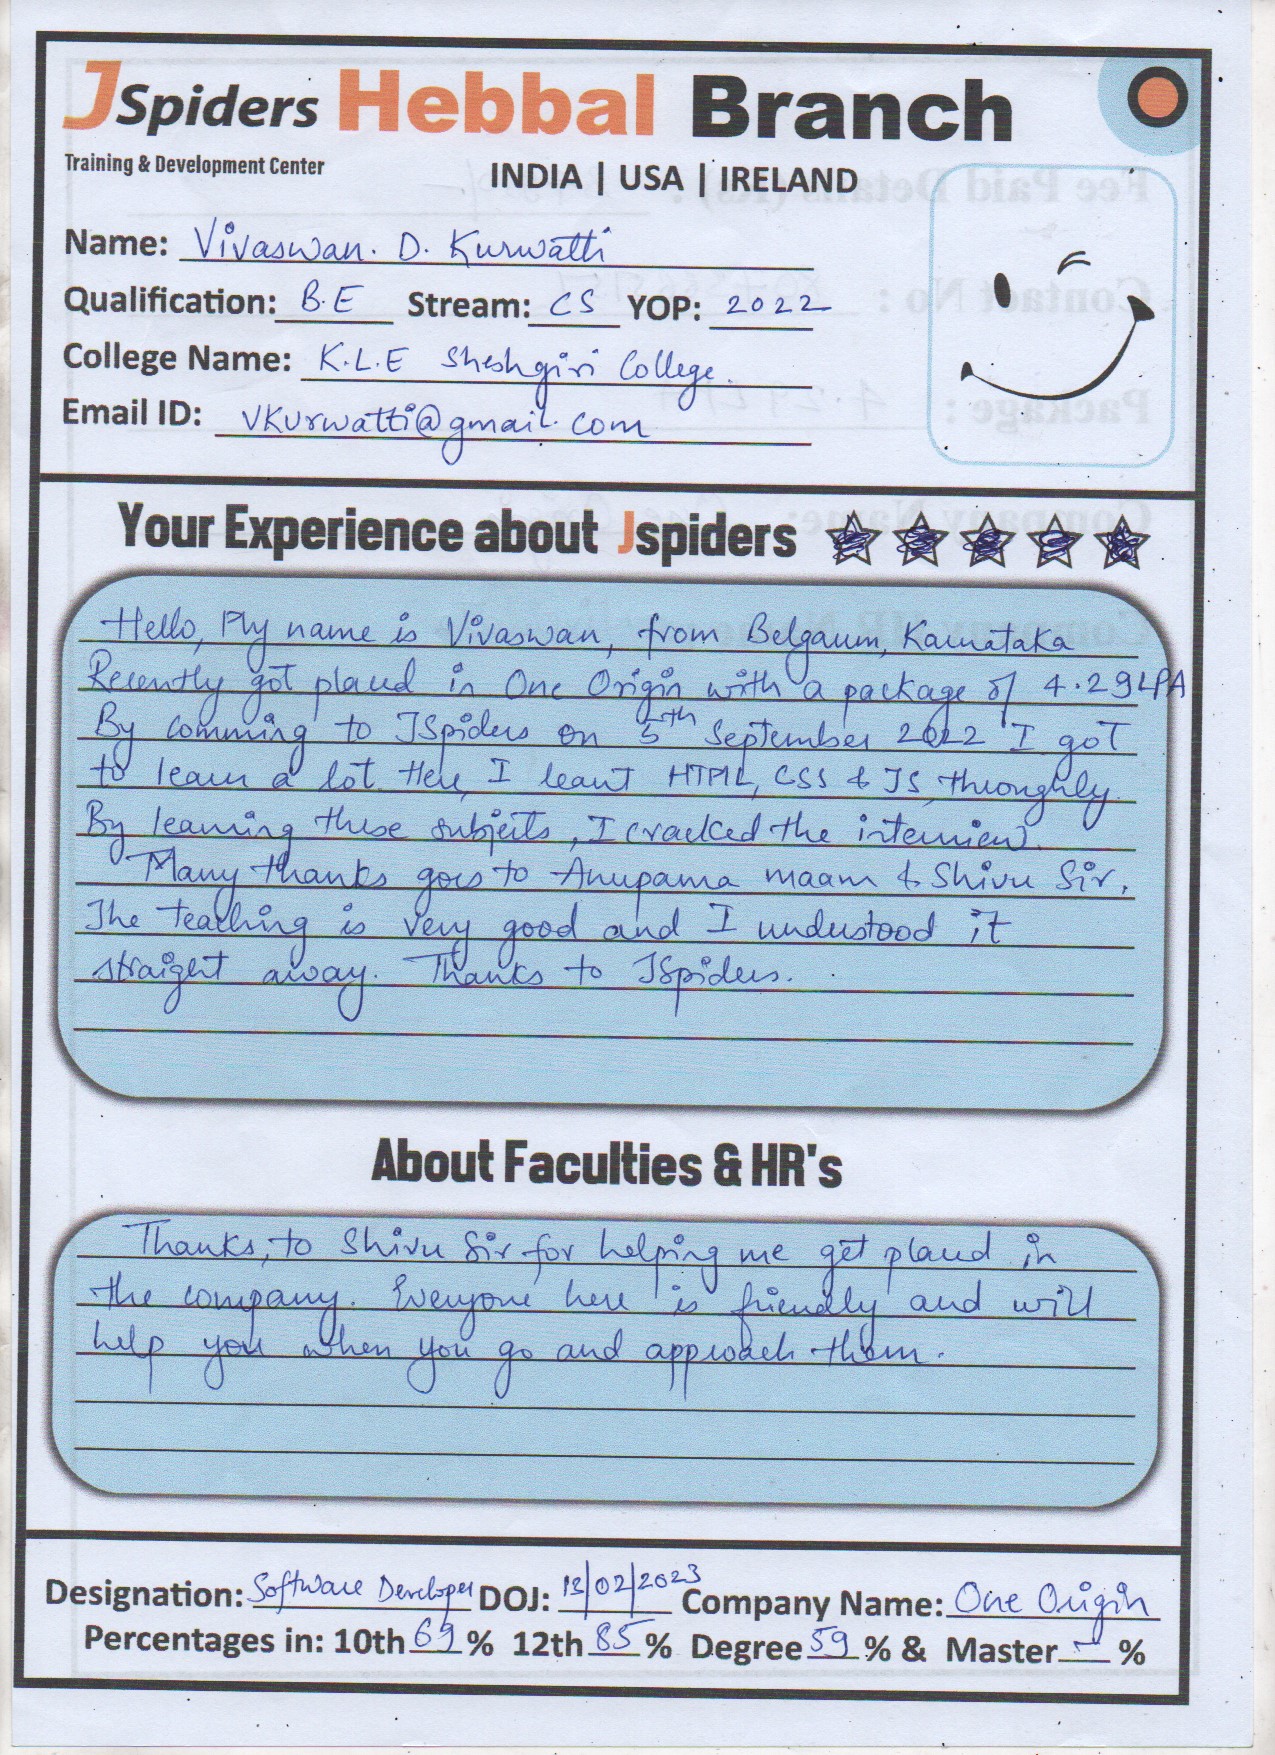 JSpiders Hebbal Branch
Training & Development Center
INDIA | USA | IRELAND
Name: Vivaswan. D. Kurwatti
Qualification: B.E Stream: CS YOP: 2022
College Name: K.L.E Sheshgiri College.
Email ID: vkurwatti@gmail.com
Your Experience about Jspiders
Hello, My name is Vivaswan, from Belgaum, Karnataka
Recently got placed in One Origin with a package of 4.29LPA
By comming to JSpiders on 5th September 2022 I got
to learn a lot. Here, I learnt HTML, CSS & JS, throughly.
By learning these subjects, I cracked the interview.
Many thanks goes to Anupama maam & Shivu Sir.
The teaching is very good and I understood it
straight away. Thanks to JSpiders.
About Faculties & HR's
Thanks, to Shivu Sir for helping me get placed in
the company. Everyone here is friendly and will
help you when you go and approach them.
Designation: Software Developer DOJ: 13/02/2023 Company Name: One Origin
Percentages in: 10th 69 % 12th 85 % Degree 59 % & Master - %